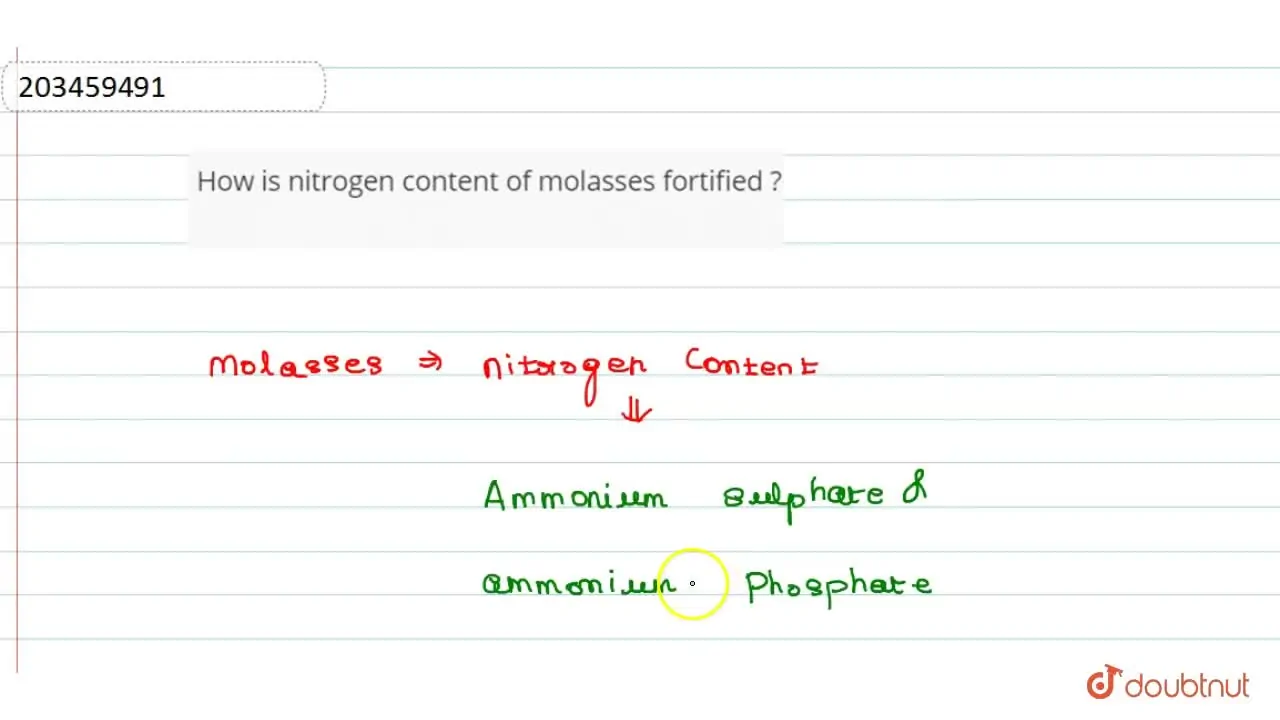 203459491
How is nitrogen content of molasses fortified ?
Molasses ⇒ nitrogen Content
⇓
Ammonium sulphate &
ammonium Phosphate
doubtnut